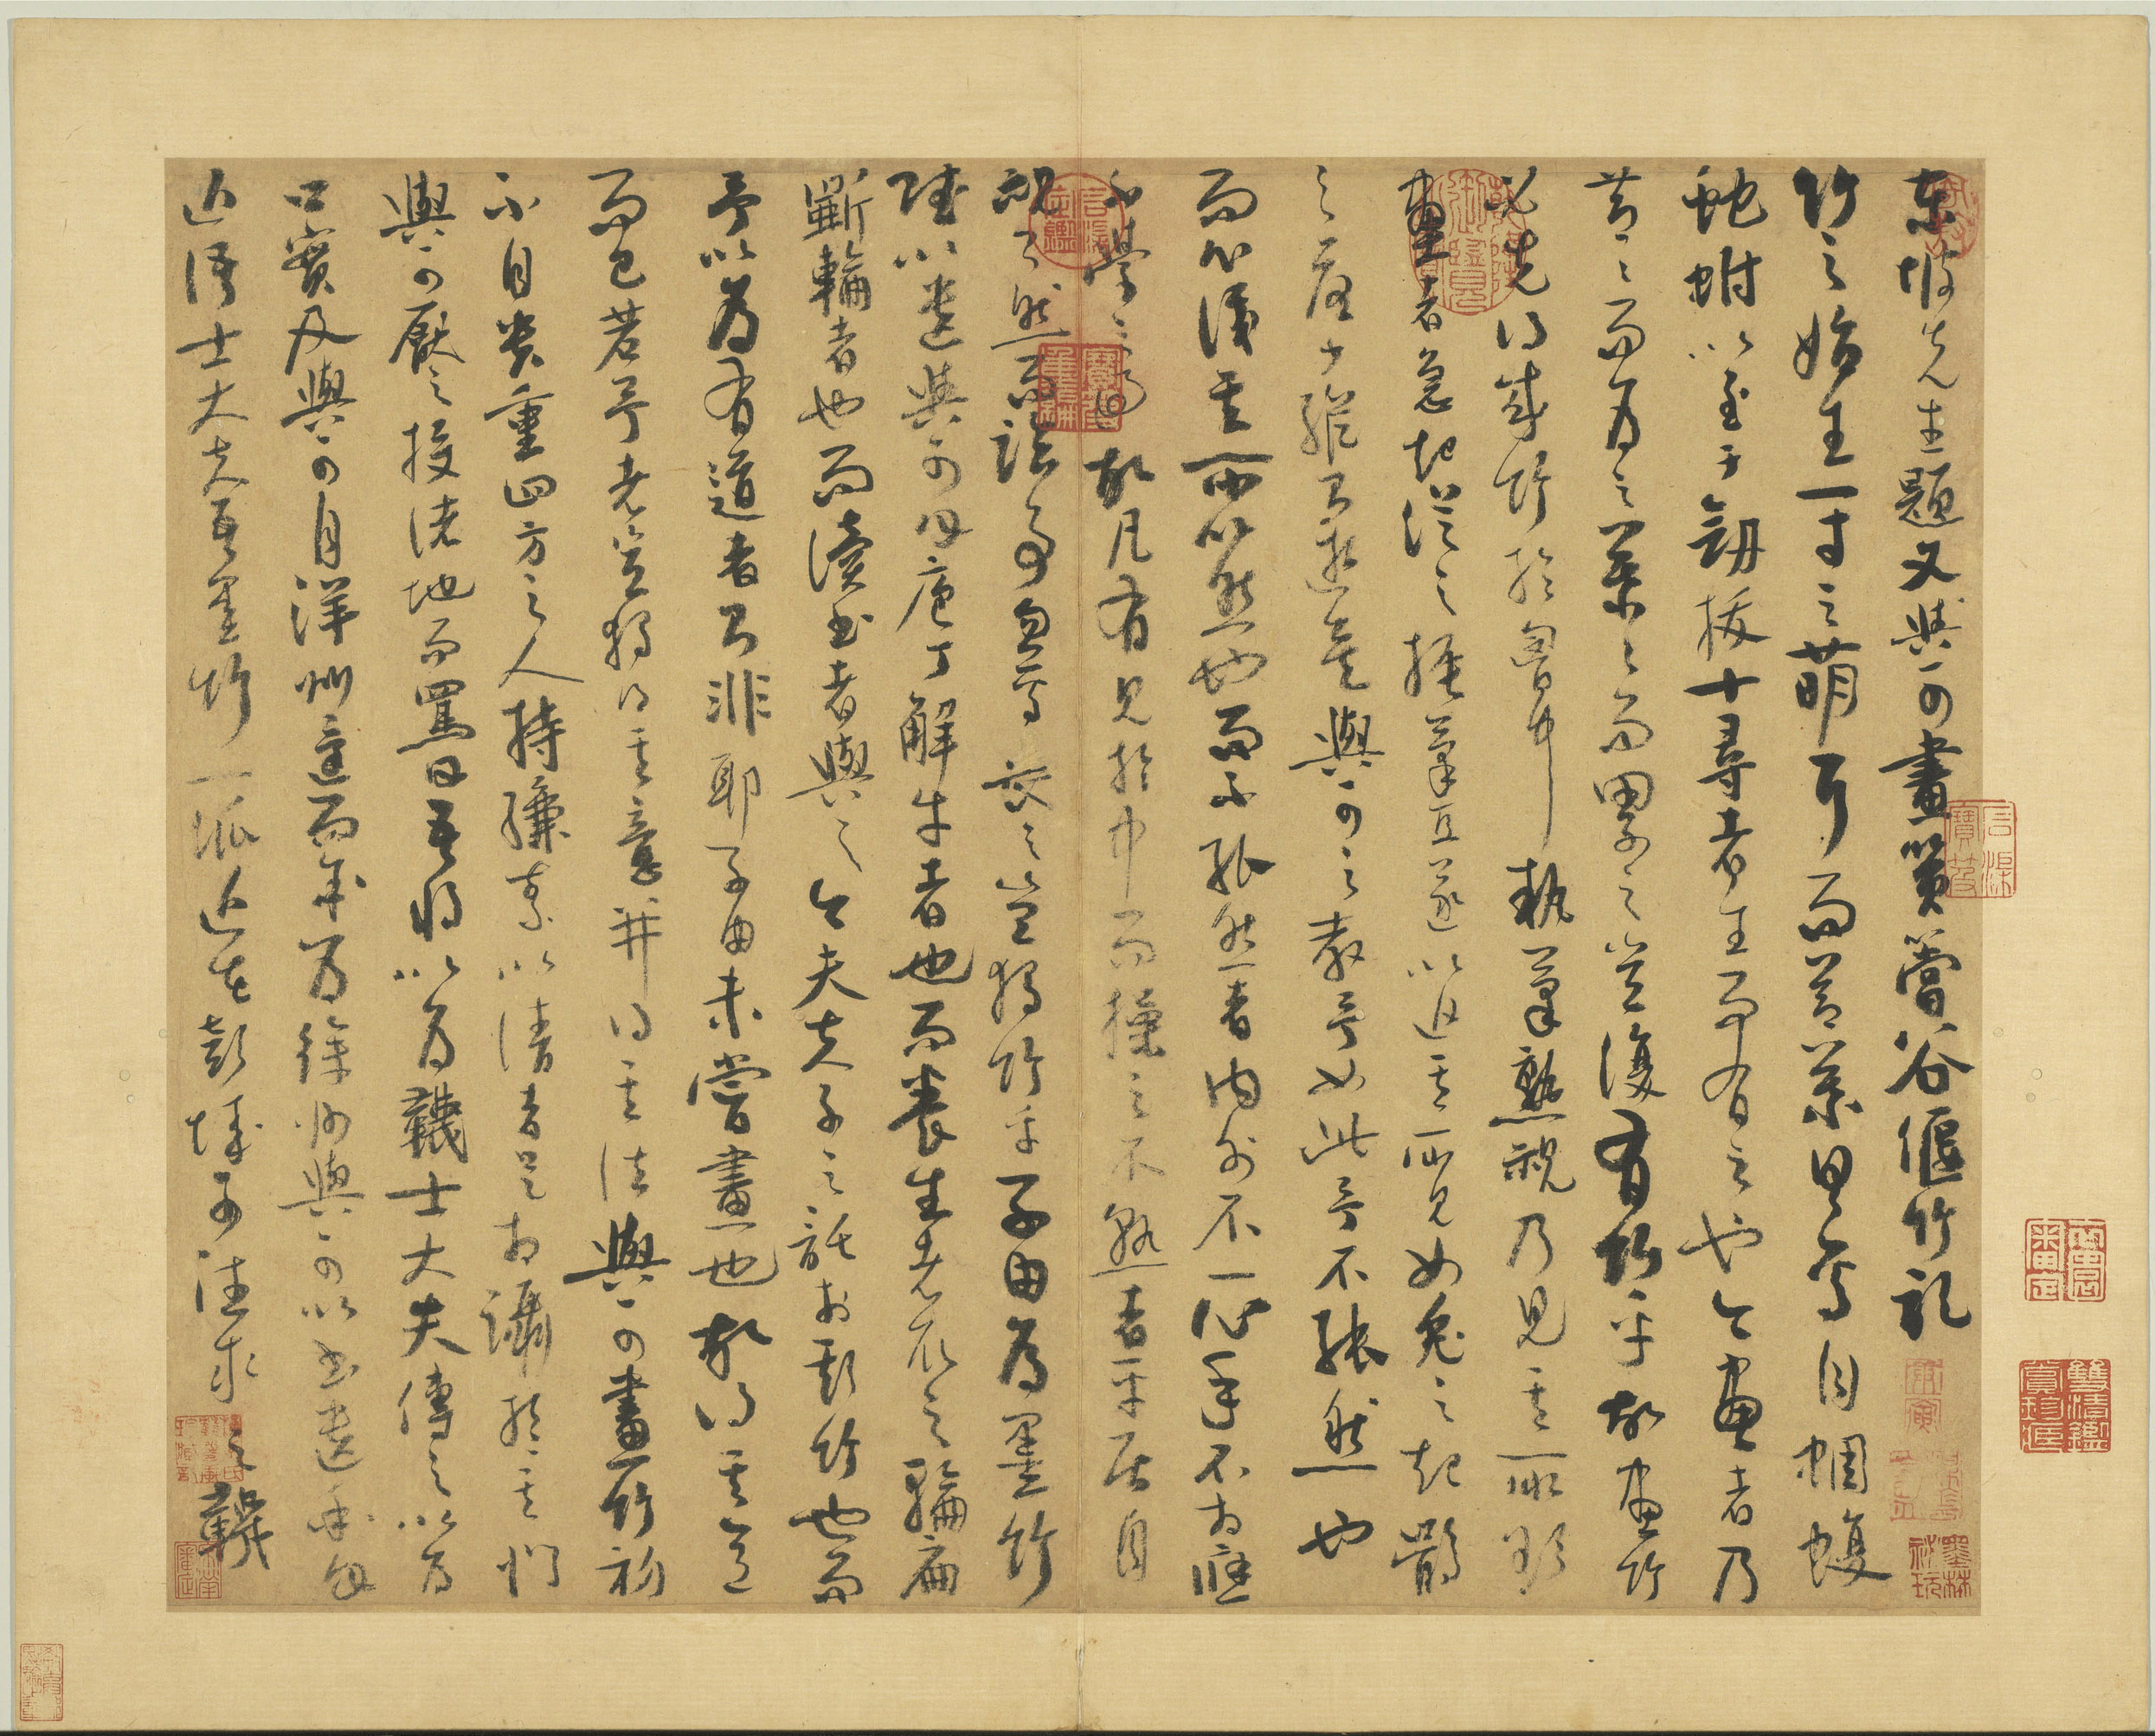 東坡先生題文與可畫篔簹谷偃竹記
竹之始生一寸之萌耳而節葉具焉自蜩蝮
蛇蚹以至于劒拔十尋者生而有之也今畫者乃
節節而為之葉葉而累之豈復有竹乎故畫竹
必先得成竹於胷中執筆熟視乃見其所欲
畫者急起從之振筆直遂以追其所見如兔之起鶻
之落少縱則逝矣與可之教予如此予不能然也
而心識其所以然也而不能然者內外不一心手不相應
不學之過故凡有見於中而操之不熟者平居自
視了然而臨事忽焉喪之豈獨竹乎子由為墨竹
賦以遺與可曰庖丁解牛者也而養生者取之輪扁
斵輪者也而讀書者與之今夫夫子之託於斯竹也而
予以為有道者則非耶子由未嘗畫也故得其意
而已若予者豈獨得其意并得其法與可畫竹初
不自貴重四方之人持縑素以請者足相躡於其門
與可厭之投諸地而罵曰吾將以為韈士大夫傳之以為
口實及與可自洋州還而余為徐州與可以書遺余曰
近語士大夫吾墨竹一派近在彭城可往求之韈
墨林祕玩